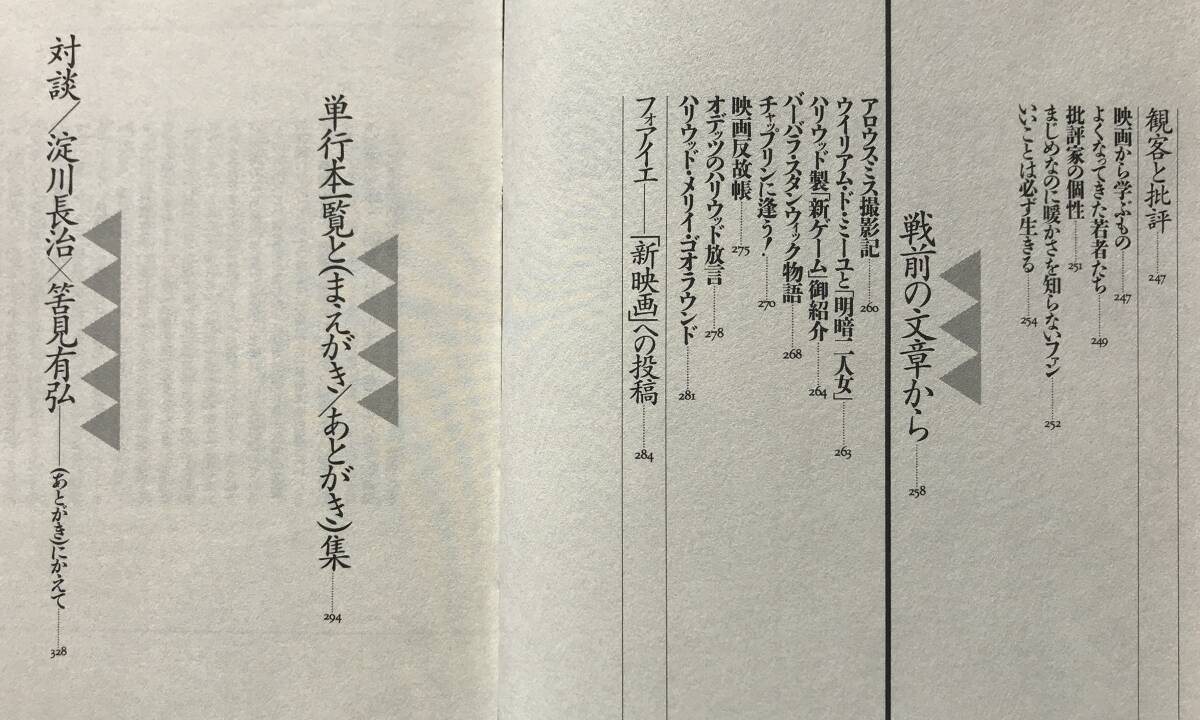 観客と批評 247
映画から学ぶもの 247
よくなってきた若者たち 249
批評家の個性 251
まじめなのに暖かさを知らないファン 252
いいことは必ず生きる 254
戦前の文章から 258
アロウスミス撮影記 260
ウイリアム・ド・ミーユと「明暗二人女」 263
ハリウッド製「新ゲーム」御紹介 264
バーバラ・スタンウィック物語 268
チャップリンに逢う! 270
映画反故帳 275
オデッツのハリウッド放言 278
ハリウッド・メリイ・ゴオラウンド 281
フォアイエ──「新映画」への投稿 284
単行本一覧と(まえがき/あとがき)集 294
対談/淀川長治×筈見有弘──(あとがき)にかえて 328